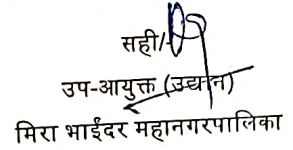 सही/-
उप-आयुक्त (उद्यान)
मिरा भाईंदर महानगरपालिका